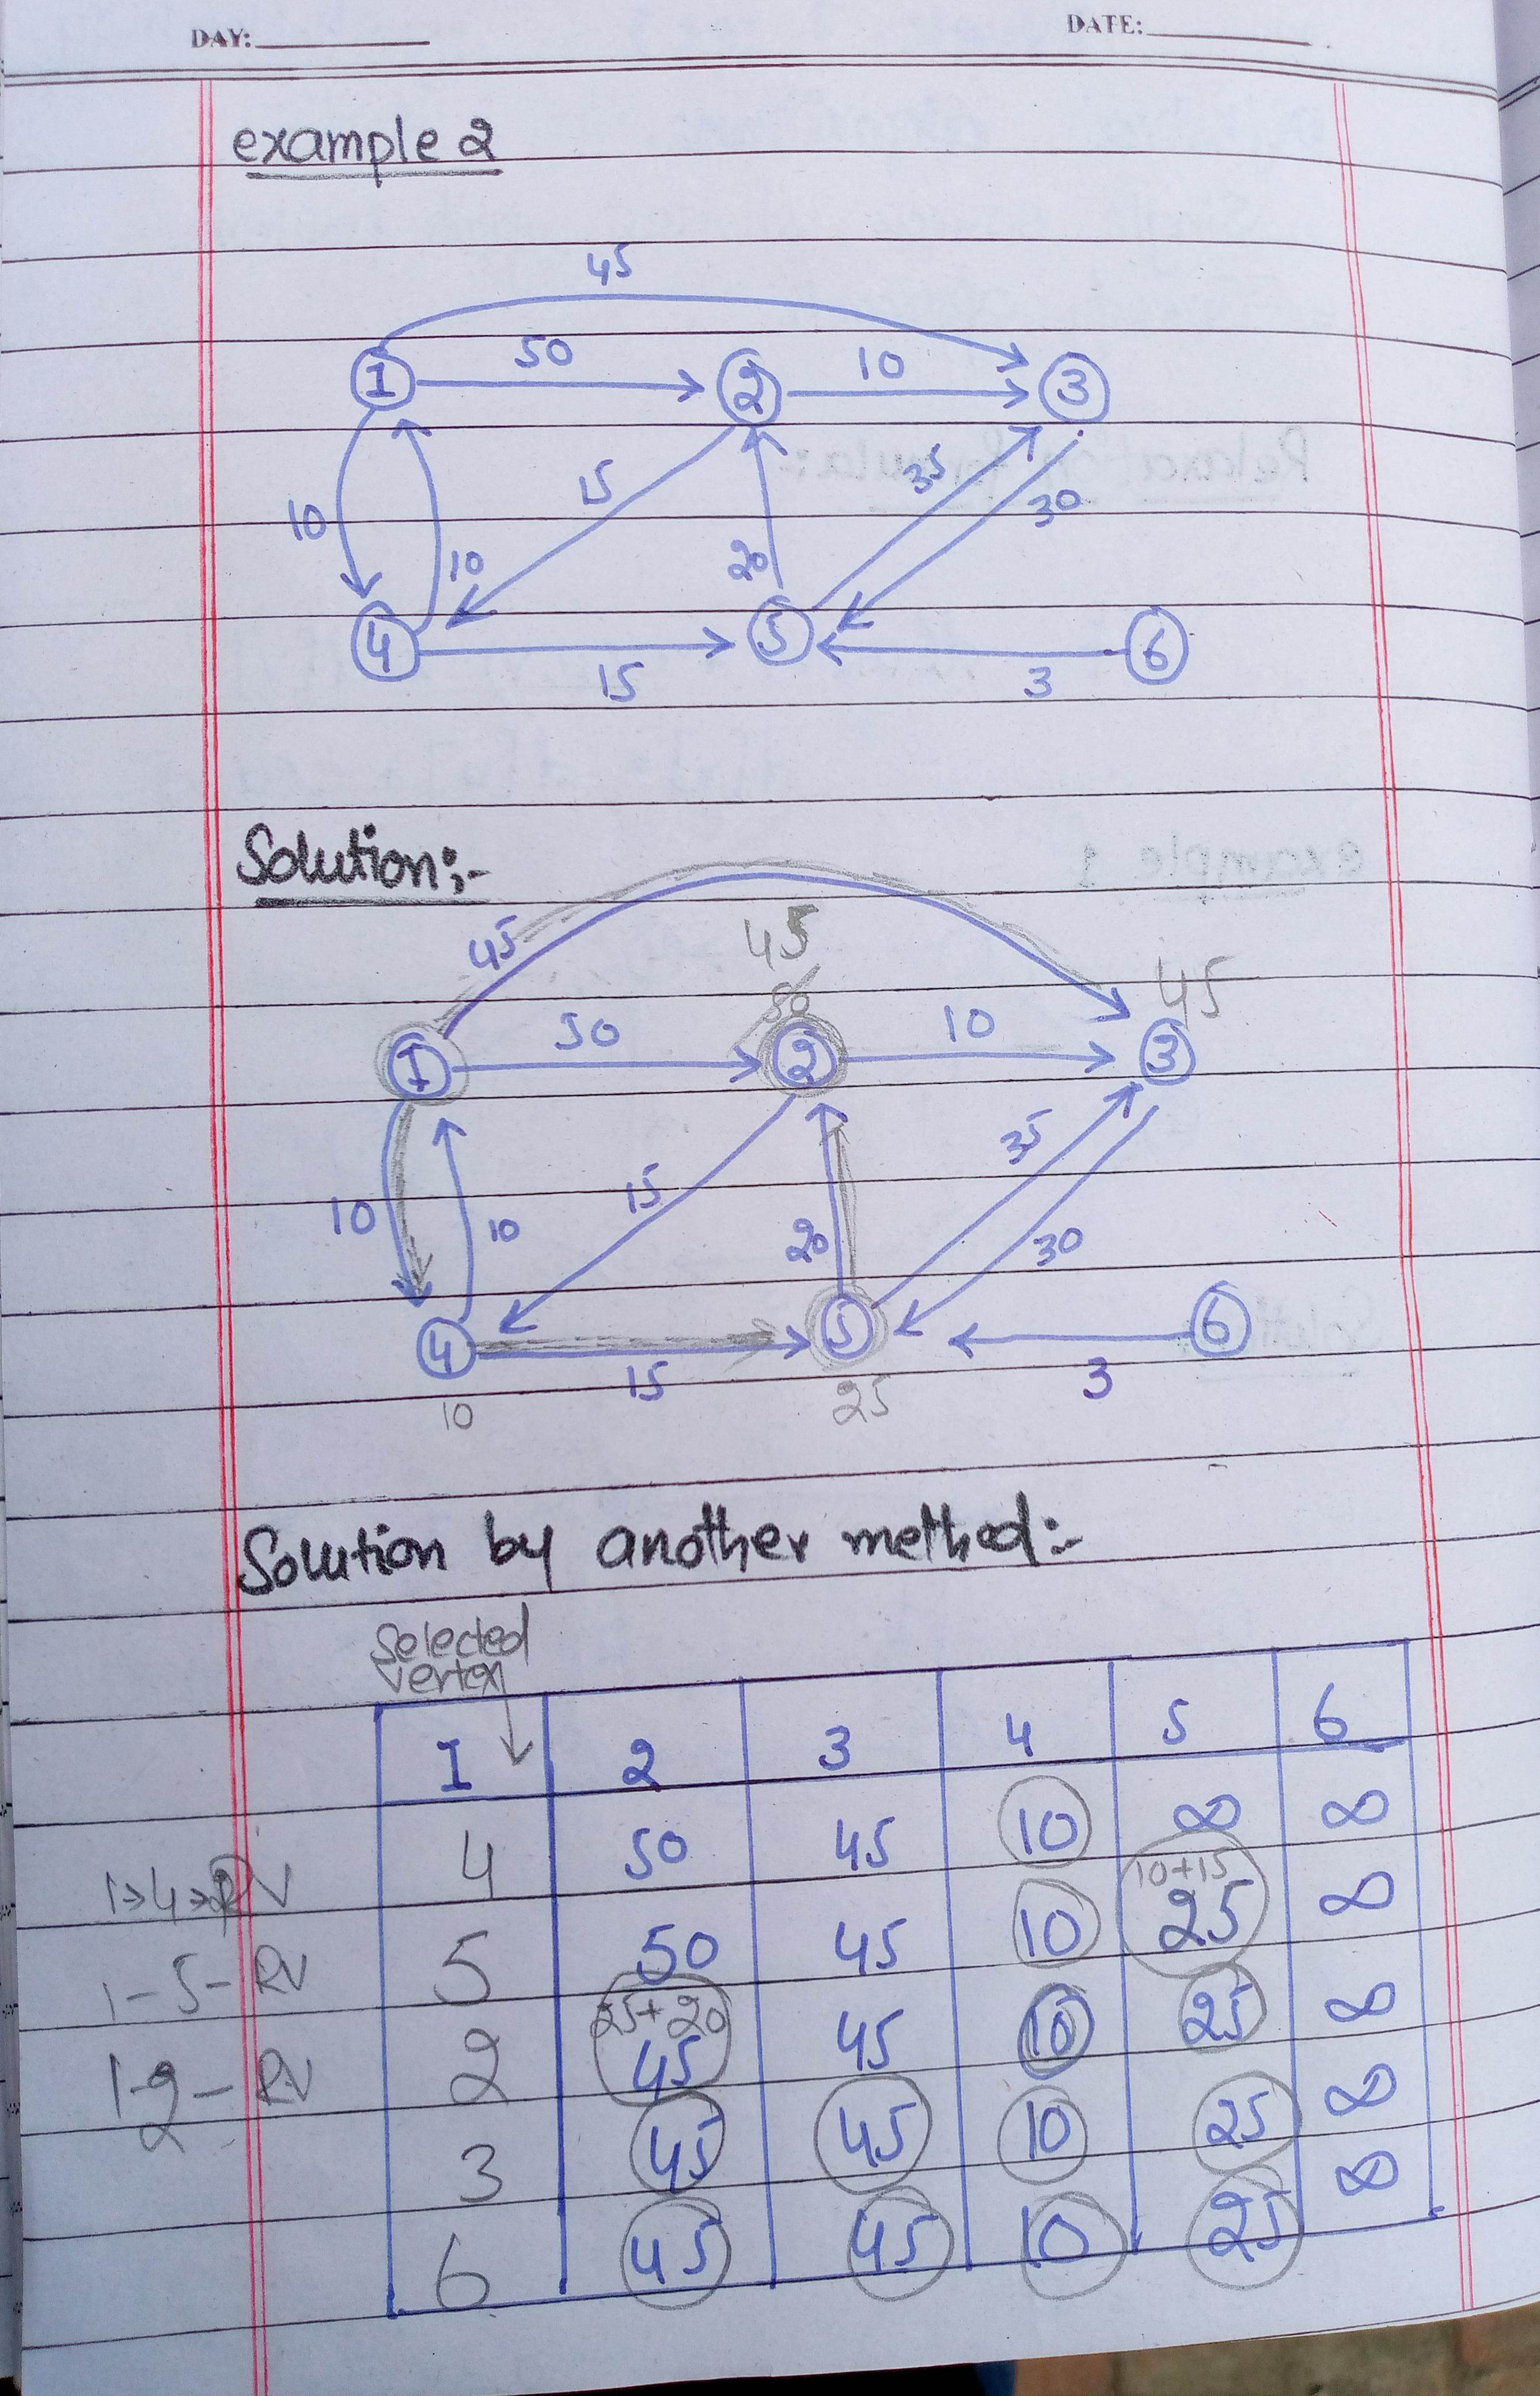 DAY:
DATE:
example 2
45
1 50 2 10 3
10 10 15 20 35 30
4 15 5 3 6
Solution:-
45 45 45
50
1 50 2 10 3
10 10 15 20 35 30
4 15 5 3 6
10 25
Solution by another method:-
Selected
vertex
1 2 3 4 5 6
4 50 45 10 ∞ ∞
10+15
5 50 45 10 25 ∞
1-5-RV
25+20
2 45 45 10 25 ∞
1-2-RV
2
3 45 45 10 25 ∞
6 45 45 10 25 ∞